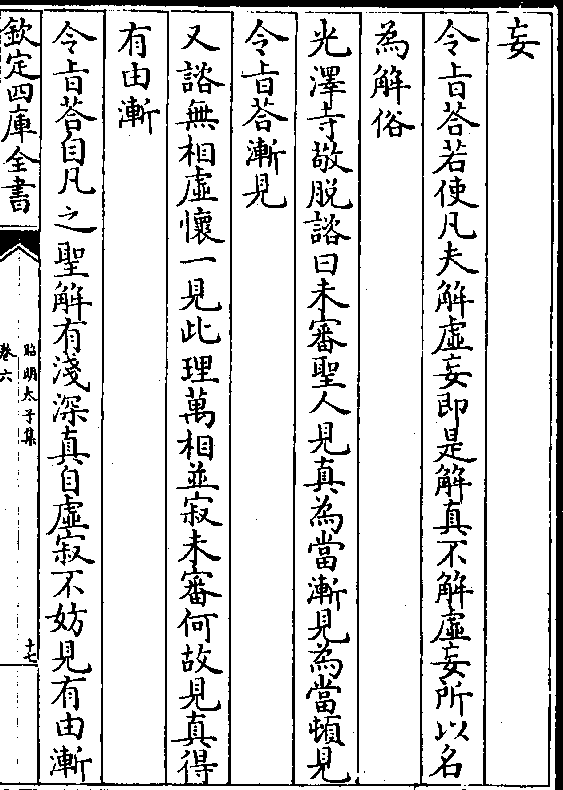 妄
令旨荅若使凡夫解虛妄即是解真不解虛妄所以名
為解俗
光澤寺敬脱諮曰未審聖人見真為當漸見為當頓見
令旨荅漸見
又諮無相虛懷一見此理萬相並寂未審何故見真得
有由漸
令旨荅自凡之聖解有淺深真自虛寂不妨見有由漸
欽定四庫全書
昭明太子集
卷六
十七